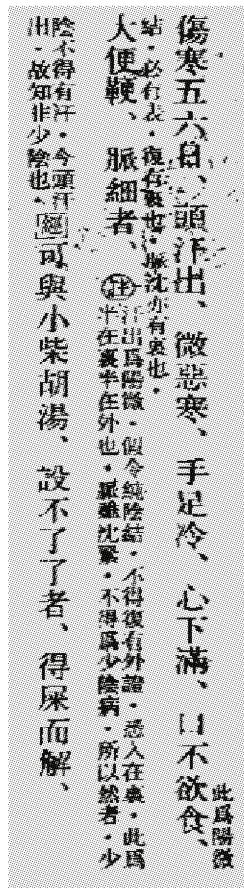 傷寒五六日、頭汗出、微惡寒、手足冷、心下滿、口不欲食、
此爲陽微
結・必有表・復有裏也・脈沈亦有裏也・
大便鞕、脈細者、
註
汗出爲陽微・假令純陰結・不得復有外證・悉入在裏・此爲
半在裏半在外也・脈雖沈緊・不得爲少陰病・所以然者・少
陰不得有汗・今頭汗
出・故知非少陰也・
經可與小柴胡湯、設不了了者、得屎而解、